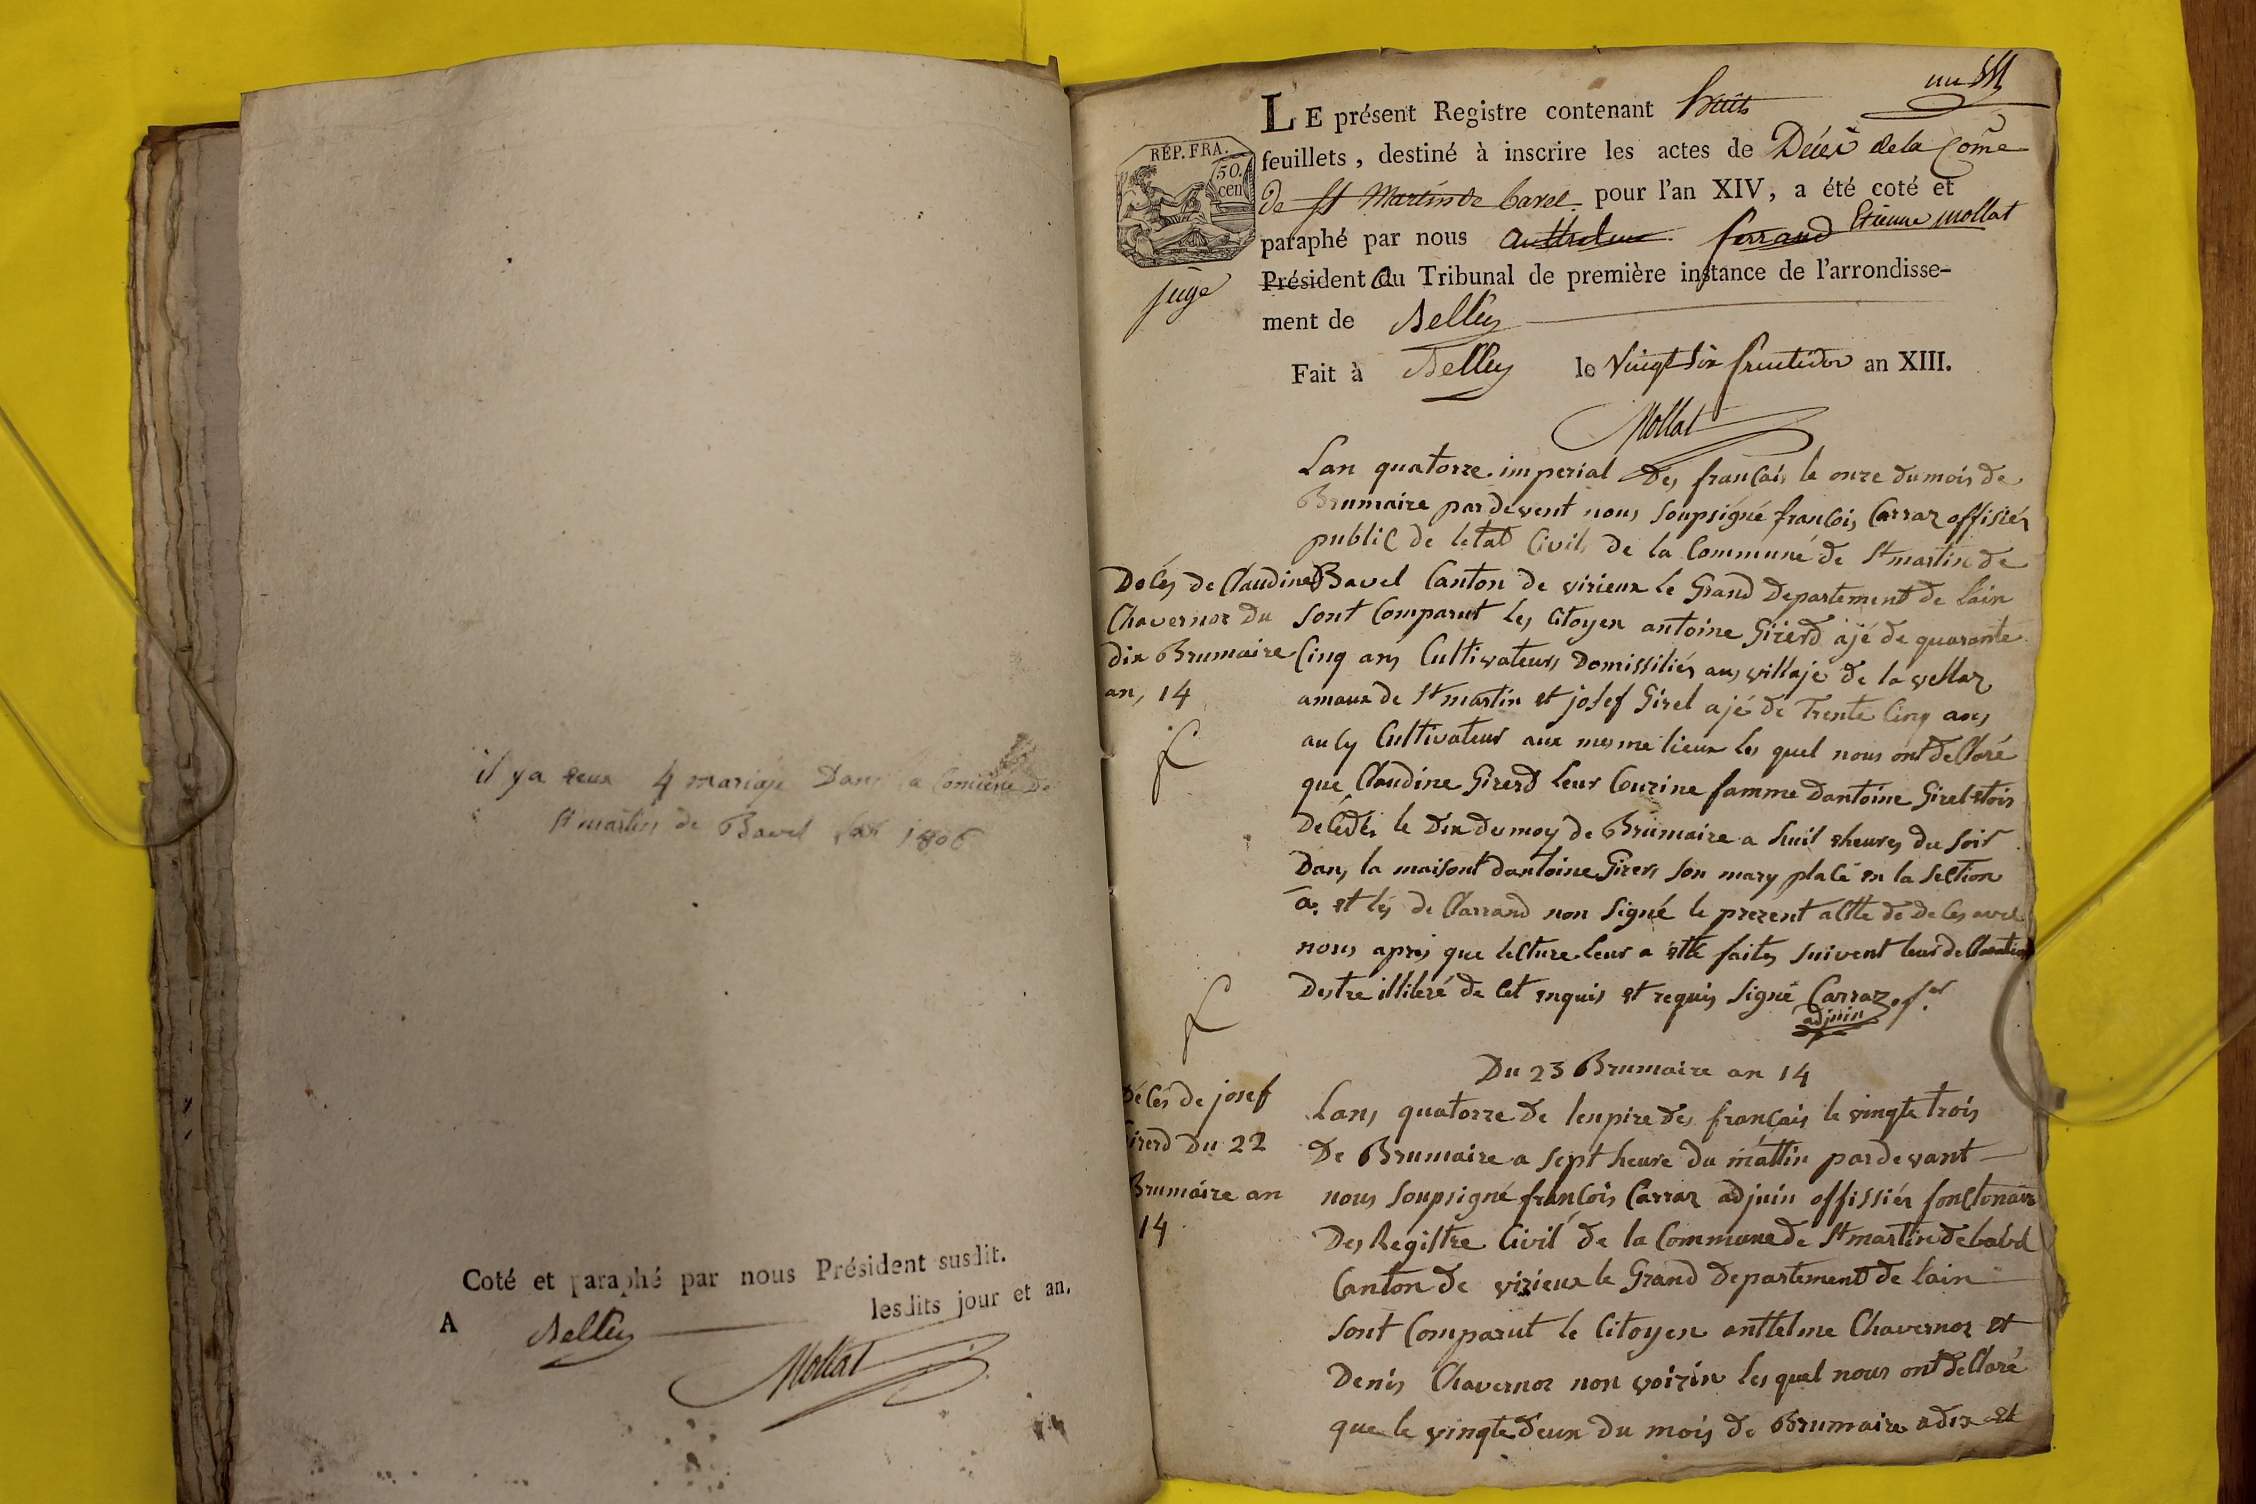 il y a eeux 4 mariaje Dans la Comune de
St martin de Bavel lan 1806
Coté et paraphé par nous Président susdit.
A Belley lesdits jour et an.
Mollat
un
LE présent Registre contenant huit
feuillets, destiné à inscrire les actes de Décès de la Come
de St Martin de Bavel pour l'an XIV, a été coté et
paraphé par nous Anthelme ferrand Etienne mollat
Président du Tribunal de première instance de l'arrondisse-
ment de Belley
Fait à Belley le vingt six fructidor an XIII.
Mollat
REP. FRA.
50.
cen
juge
Lan quatorze imperial des français le onze du mois de
Brumaire pardevent nous soupsigné françois Carraz offisier
public de letat Civil de la Commune de St martin de
Bavel Canton de virieux le Grand Departement de lain
sont Comparut les Citoyen antoine Girerd ajé de quarante
Cinq ans Cultivateurs Domissiliés aus villaje de la vellaz
amaux de St martin et josef Girel ajé de Trente Cinq ans
aucy Cultivateur aux mesme lieux les quel nous ont declaré
que Claudine Girerd leur Couzine famme Dantoine Girel etois
Décédés le Dix du moy de Brumaire a huit eheures du soir
Dans la maisont dantoine Girers son mary placé en la section
a. et les de Clarrand non signé le prezent actte de deces avec
nous apres que lecture leur a etté faites suivent leur declaration
Destre illiteré de Cet enquis et requis signé Carraz
adjuin
Dècés de Claudine
Chavernoz Du
dix Brumaire
an, 14
Du 23 Brumaire an 14
Lans quatorze de lenpire des français le vingte trois
De Brumaire a sept heure du mattin pardevant
nous soupsigné françois Carraz adjuin offissier fonctonaire
Des Registre Civil de la Commune de St martin de bavel
Canton de virieux le Grand Departement de lain
sont Comparut le Citoyen anttelme Chavernoz et
Denis Chavernoz non voizin les quel nous ont declaré
que le vingte deux du mois de Brumaire a dix et
Décés de josef
Girerd Du 22
Brumaire an
14